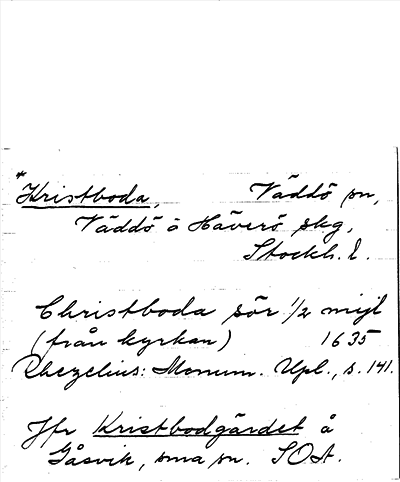 *Kristboda, Väddö sn,
Väddö o Häverö skg,
Stockh. l.
Christboda sör 1/2 mijl
(från kyrkan) 1635
Rhezelius: Monum. Upl., s. 141.
Jfr Kristbodgärdet å
Gåsvik, sma sn. SOA.